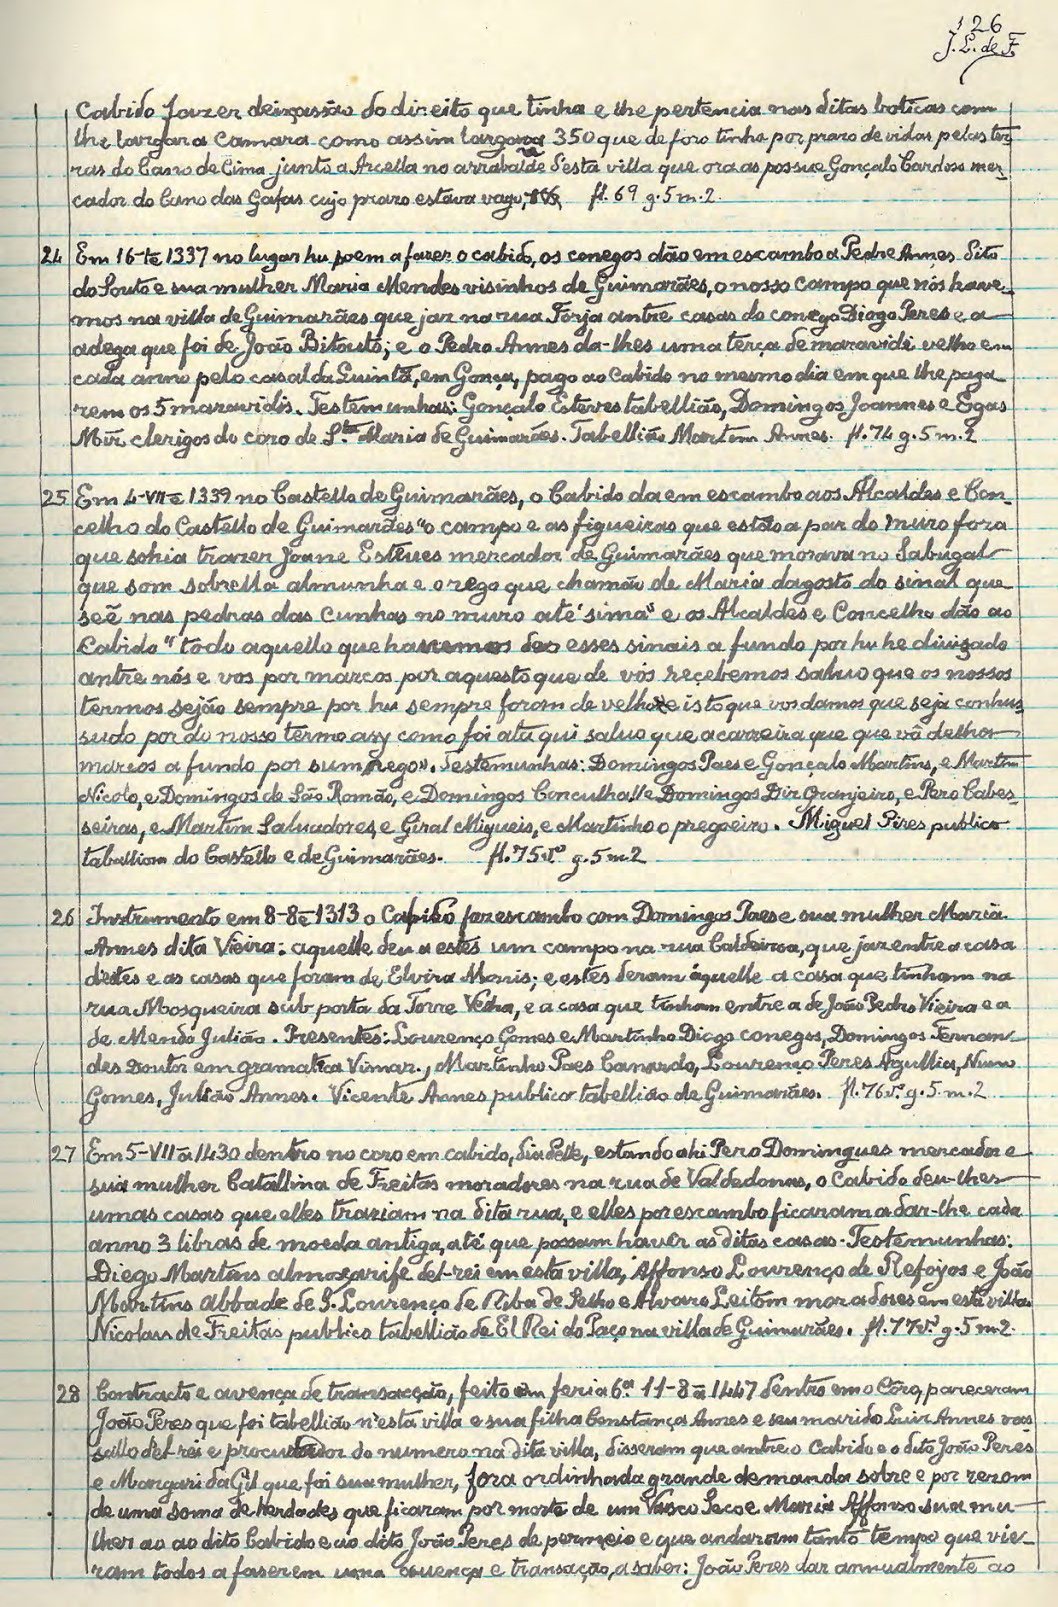 126
J. L. de F.
Cabido fazer deixassão do direito que tinha e lhe pertencia nas ditas boticas com
lhe largar a Camara como assim largava 350 que de foro tinha por prazo de vidas pelas ter-
ras do Cano de Cima junto a Arcella no arrabalde d'esta villa que ora as possue Gonçalo Cardoso mer-
cador do Cano das Gafas cujo prazo estava vago, fl. 69 g. 5 m. 2.
24 Em 16- 1337 no lugar hu poem a fazer o cabido, os conegos dão em escambo a Pedre Annes Dito
do Souto e sua mulher Maria Mendes visinhos de Guimarães, o nosso campo que nós have-
mos na villa de Guimarães que jaz na rua Forja antre casas do conego Diogo Peres e a
adega que foi de João Bitouto; e o Pedro Annes da-lhes uma terça de maravidi velho em
cada anno pelo casal da Quintã, em Gonça, pago ao Cabido no mesmo dia em que lhe paga
rem os 5 maravidis. Testemunhas: Gonçalo Esteves tabellião, Domingos Joannes e Egas
Miz clerigos do coro de S.ta Maria de Guimarães. Tabellião Martim Annes. fl. 74 g. 5 m. 2
25 Em 4-VII-e 1339 no Castello de Guimarães, o Cabido da em escambo aos Alcaldes e Con-
celho do Castello de Guimarães "o campo e as figueiras que estão a par do muro fora
que sohia trazer Joane Esteues mercador de Guimarães que morava no Sabugal
que som sobrella almunha e o rego que chamão de Maria dagosto do sinal que
seẽ nas pedras das cunhas no muro até sima" e os Alcaldes e Concelho dão ao
Cabido "todo aquello que havemos des esses sinais a fundo por hu he divizado
antre nós e vos por marcos por aquesto que de vós recebemos saluo que os nossos
termos sejão sempre por hu sempre foram de velho e isto que vos damos que seja conhus
sudo por do nosso termo asy como foi ata qui saluo que a carreira que que vã delhos
marcos a fundo por sum rego". Testemunhas: Domingos Paes e Gonçalo Martins, e Martim
Nicolo, e Domingos de São Romão, e Domingos Conculha e Domingos Dir Granjeiro, e Pero Cabes-
seiras, e Martim Saluadores, e Giral Migueis, e Martinho o pregoeiro. Miguel Pires publico
tabelliom do Castello e de Guimarães. fl. 75 v.º g. 5 m. 2
26 Instrumento em 8-8-e 1313 o Cabido faz escambo com Domingos Paes e sua mulher Maria
Annes dita Vieira: aquelle deu a estes um campo na rua Caldeiroa, que jaz entre a casa
d'estes e as casas que foram de Elvira Monis; e estes deram áquelle a casa que tinham na
rua Mosqueira sub porta da Torre Velha, e a casa que tinham entre a de João Pedro Vieira e a
de Mendo Julião. Presentes: Lourenço Gomes e Martinho Diogo conegos, Domingos Fernan-
des Doutor em gramatica Vimar., Martinho Paes Canardo, Lourenço Peres Agullia, Nuno
Gomes, Julião Annes. Vicente Annes publico tabellião de Guimarães. fl. 76 v. g. 5 m. 2
27 Em 5-VII-e 1430 dentro no coro em cabido, estando ahi Pero Domingues mercador e
sua mulher Catallina de Freitas moradores na rua de Valdedonas, o Cabido deu-lhes
umas casas que elles traziam na dita rua, e elles por escambo ficaram a dar-lhe cada
anno 3 libras de moeda antiga, até que possam haver as ditas casas. Testemunhas:
Diego Martins almoxarife del-rei em esta villa, Affonso Lourenço de Refoyos e João
Martins abbade de S. Lourenço de Riba de Selho e Alvaro Leitom moradores em esta villa
Nicolaus de Freitas publico tabellião de El Rei do Paço na villa de Guimarães. fl. 77 v.º g. 5 m. 2.
28 Contracto e avença de transacção, feito em feria 6.ª 11-8-e 1447 dentro em o Côro, pareceram
João Peres que foi tabellião n'esta villa e sua filha Constança Annes e seu marido Luiz Annes vas
sallo del-rei e procurador do numero na dita villa, disseram que antre o Cabido e o dito João Peres
e Margarida Gil que foi sua mulher, fora ordinhada grande demanda sobre e por rezom
de uma soma de herdades que ficaram por morte de um Vasco Seco e Maria Affonso sua mu-
lher ao ao dito Cabido e ao dito João Peres de permeio e que andaram tanto tempo que vie-
ram todos a fazerem uma avença e transação, a saber: João Peres dar annualmente ao